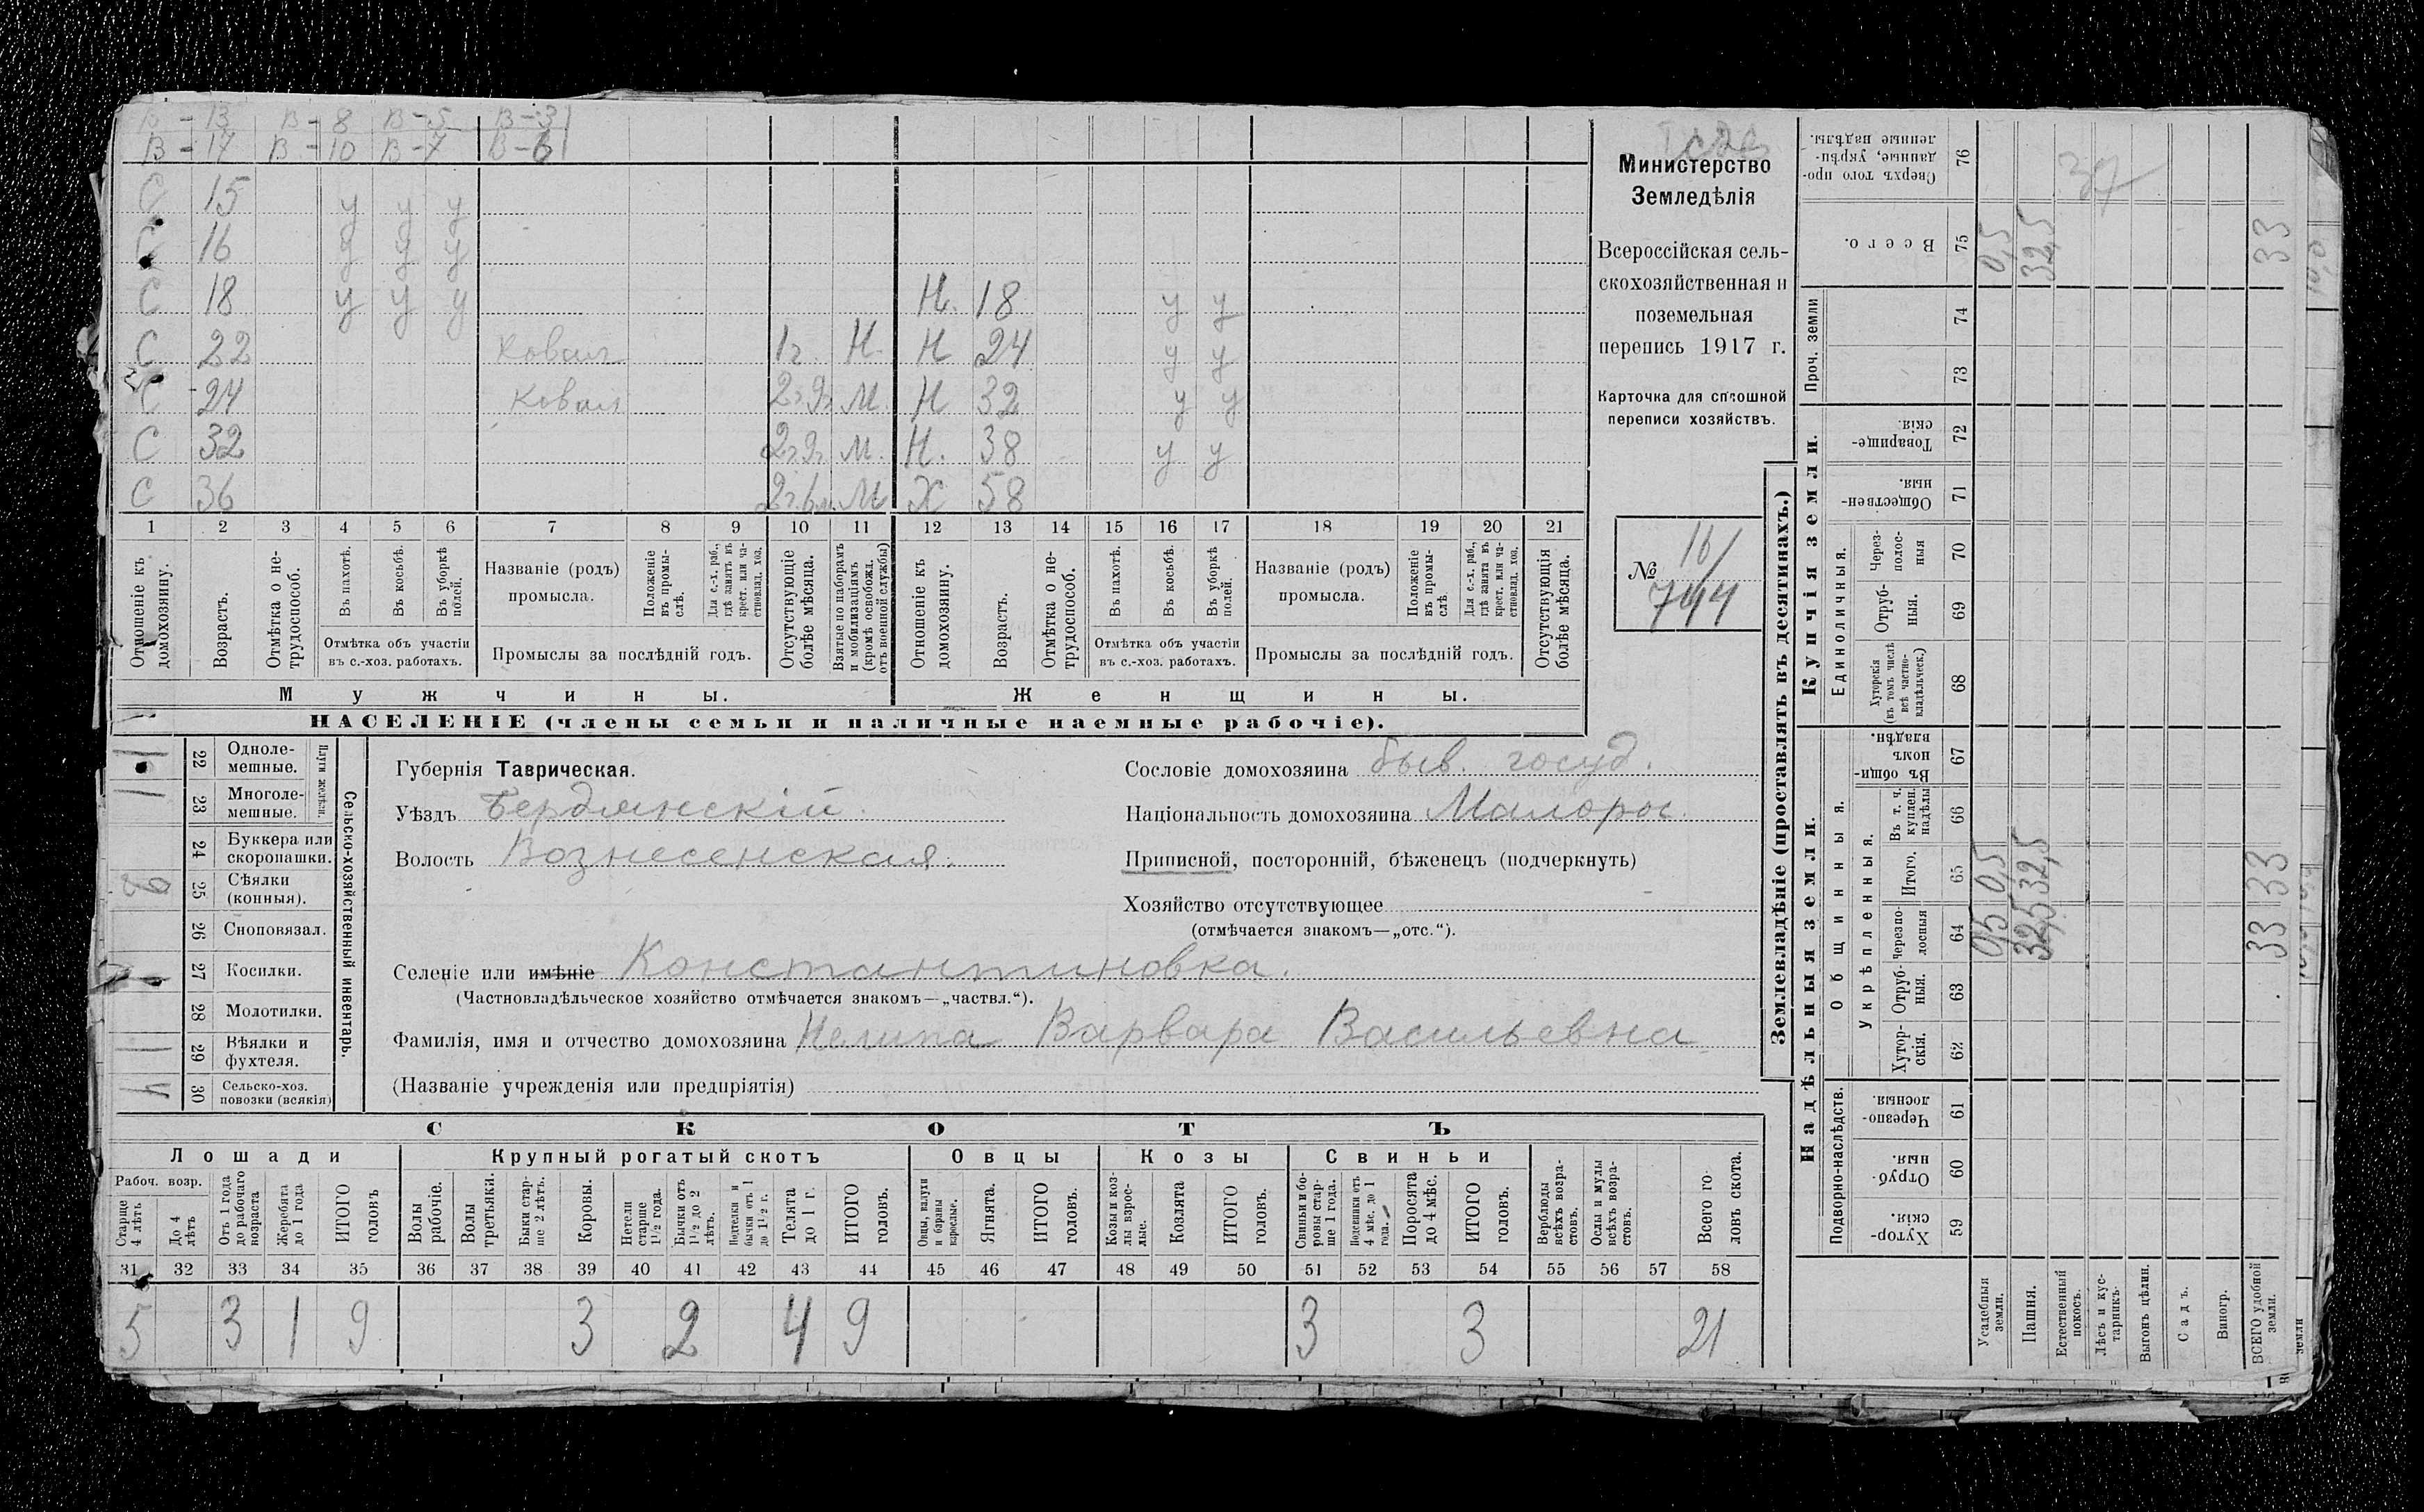 В - 13 В - 8 В - 5 В - 3
В - 17 В - 10 В - 7 В - 6
С 15 у у у
С 16 у у у
С 18 у у у Н. 18 у у
С 22 Коваль 1 г. Н. Н 24 у у
С 24 Коваль М. Н 32 у у
С 32 М. Н. 38 у у
С 36 М Х 58
1 2 3 4 5 6 7 8 9 10 11 12 13 14 15 16 17 18 19 20 21
Отношеніе къ домохозяину.
Возрастъ.
Отмѣтка о нетрудоспособ.
Въ пахотѣ.
Въ косьбѣ.
Въ уборкѣ полей.
Отмѣтка объ участіи
въ с.-хоз. работахъ.
Названіе (родъ)
промысла.
Положеніе въ промыслѣ.
Для с.-х. раб., гдѣ занятъ въ крест. или частновлад. хоз.
Промыслы за послѣдній годъ.
Отсутствующіе болѣе мѣсяца.
Взятые по наборамъ и мобилизаціямъ (кромѣ освобожд. отъ военной службы)
Отношеніе къ домохозяину.
Возрастъ.
Отмѣтка о нетрудоспособ.
Въ пахотѣ.
Въ косьбѣ.
Въ уборкѣ полей.
Отмѣтка объ участіи
въ с.-хоз. работахъ.
Названіе (родъ)
промысла.
Положеніе въ промыслѣ
Для с.-х. раб., гдѣ занята въ крест. или частновлад. хоз.
Промыслы за послѣдній годъ.
Отсутствующія болѣе мѣсяца.
Мужчины. Женщины.
НАСЕЛЕНІЕ (члены семьи и наличные наемные рабочіе).
Министерство
Земледѣлія
Всероссійская сель-
скохозяйственная и
поземельная
перепись 1917 г.
Карточка для сплошной
переписи хозяйствъ.
№ 16/
744
Сельско-хозяйственный инвентарь.
Плуги желѣзн.
1 22 Одноле-
мешные.
1 23 Многоле-
мешные.
24 Буккера или
скоропашки.
25 Сѣялки
(конныя).
26 Сноповязал.
1 27 Косилки.
28 Молотилки.
1 29 Вѣялки и
фухтеля.
30 Сельско-хоз.
повозки (всякія)
Губернія Таврическая.
Уѣздъ Бердянскій.
Волость Вознесенская.
Сословіе домохозяина быв. госуд.
Національность домохозяина Малорос.
Приписной, посторонній, бѣженецъ (подчеркнуть)
Хозяйство отсутствующее
(отмѣчается знакомъ—„отс.“).
Селеніе или имѣніе Константиновка.
(Частновладѣльческое хозяйство отмѣчается знакомъ—„частвл.“).
Фамилія, имя и отчество домохозяина Нелипа Варвара Васильевна
(Названіе учрежденія или предпріятія)
СКОТЪ
Лошади Крупный рогатый скотъ Овцы Козы Свиньи
Рабоч. возр.
Старше 4 лѣтъ
До 4 лѣтъ
Отъ 1 года до рабочаго возраста
Жеребята до 1 года
ИТОГО головъ
Волы рабочіе.
Волы третьяки.
Быки старше 2 лѣтъ.
Коровы.
Нетели старше 1½ года.
Бычки отъ 1½ до 2 лѣтъ.
Подтелки и бычки отъ 1 до 1½ г.
Телята до 1 г.
ИТОГО головъ.
Овцы, валухи и бараны взрослые.
Ягнята.
ИТОГО головъ.
Козы и козлы взрослые.
Козлята
ИТОГО головъ.
Свиньи и боровы старше 1 года.
Подсвинки отъ 4 мѣс. до 1 года.
Поросята до 4 мѣс.
ИТОГО головъ.
Верблюды всѣхъ возрастовъ.
Ослы и мулы всѣхъ возрастовъ.
Всего головъ скота.
31 32 33 34 35 36 37 38 39 40 41 42 43 44 45 46 47 48 49 50 51 52 53 54 55 56 57 58
5 3 1 9 3 2 4 9 3 3 21
Землевладѣніе (проставлять въ десятинахъ.)
Купчія земли.
Надѣльныя земли.
Сверхъ того проданные, укрѣпленные надѣлы. 76 37
Всего. 75 0,5 32,5 33
Проч. земли
74
73
Товарищескія. 72
Общественныя. 71
Единоличныя.
Черезполосныя 70
Отрубныя. 69
Хуторскія (въ томъ числѣ всѣ частновладѣльческ.) 68
Общинныя.
Въ общинномъ владѣн. 67
Укрѣпленныя.
Въ т. ч. куплен. надѣлы 66
Итого. 65 0,5 32,5 33
Черезполосныя 64 0,5 32,5 33
Отрубныя. 63
Хуторскія. 62
Подворно-наслѣдств.
Черезполосныя. 61
Отрубныя. 60
Хуторскія. 59
Усадебныя земли.
Пашня.
Естественный покосъ.
Лѣсъ и кустарникъ.
Выгонъ цѣлин.
Садъ.
Виногр.
ВСЕГО удобной земли.
земли